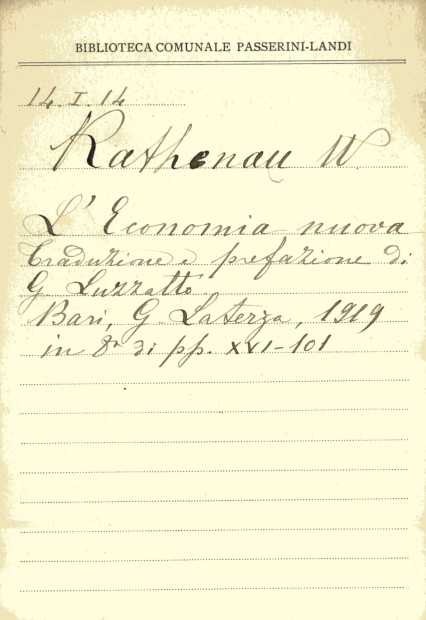 BIBLIOTECA COMUNALE PASSERINI-LANDI
14.I.14
Rathenau W.
L'Economia nuova
Traduzione e prefazione di
G. Luzzatto.
Bari, G. Laterza, 1919
in 8° di pp. XVI-101